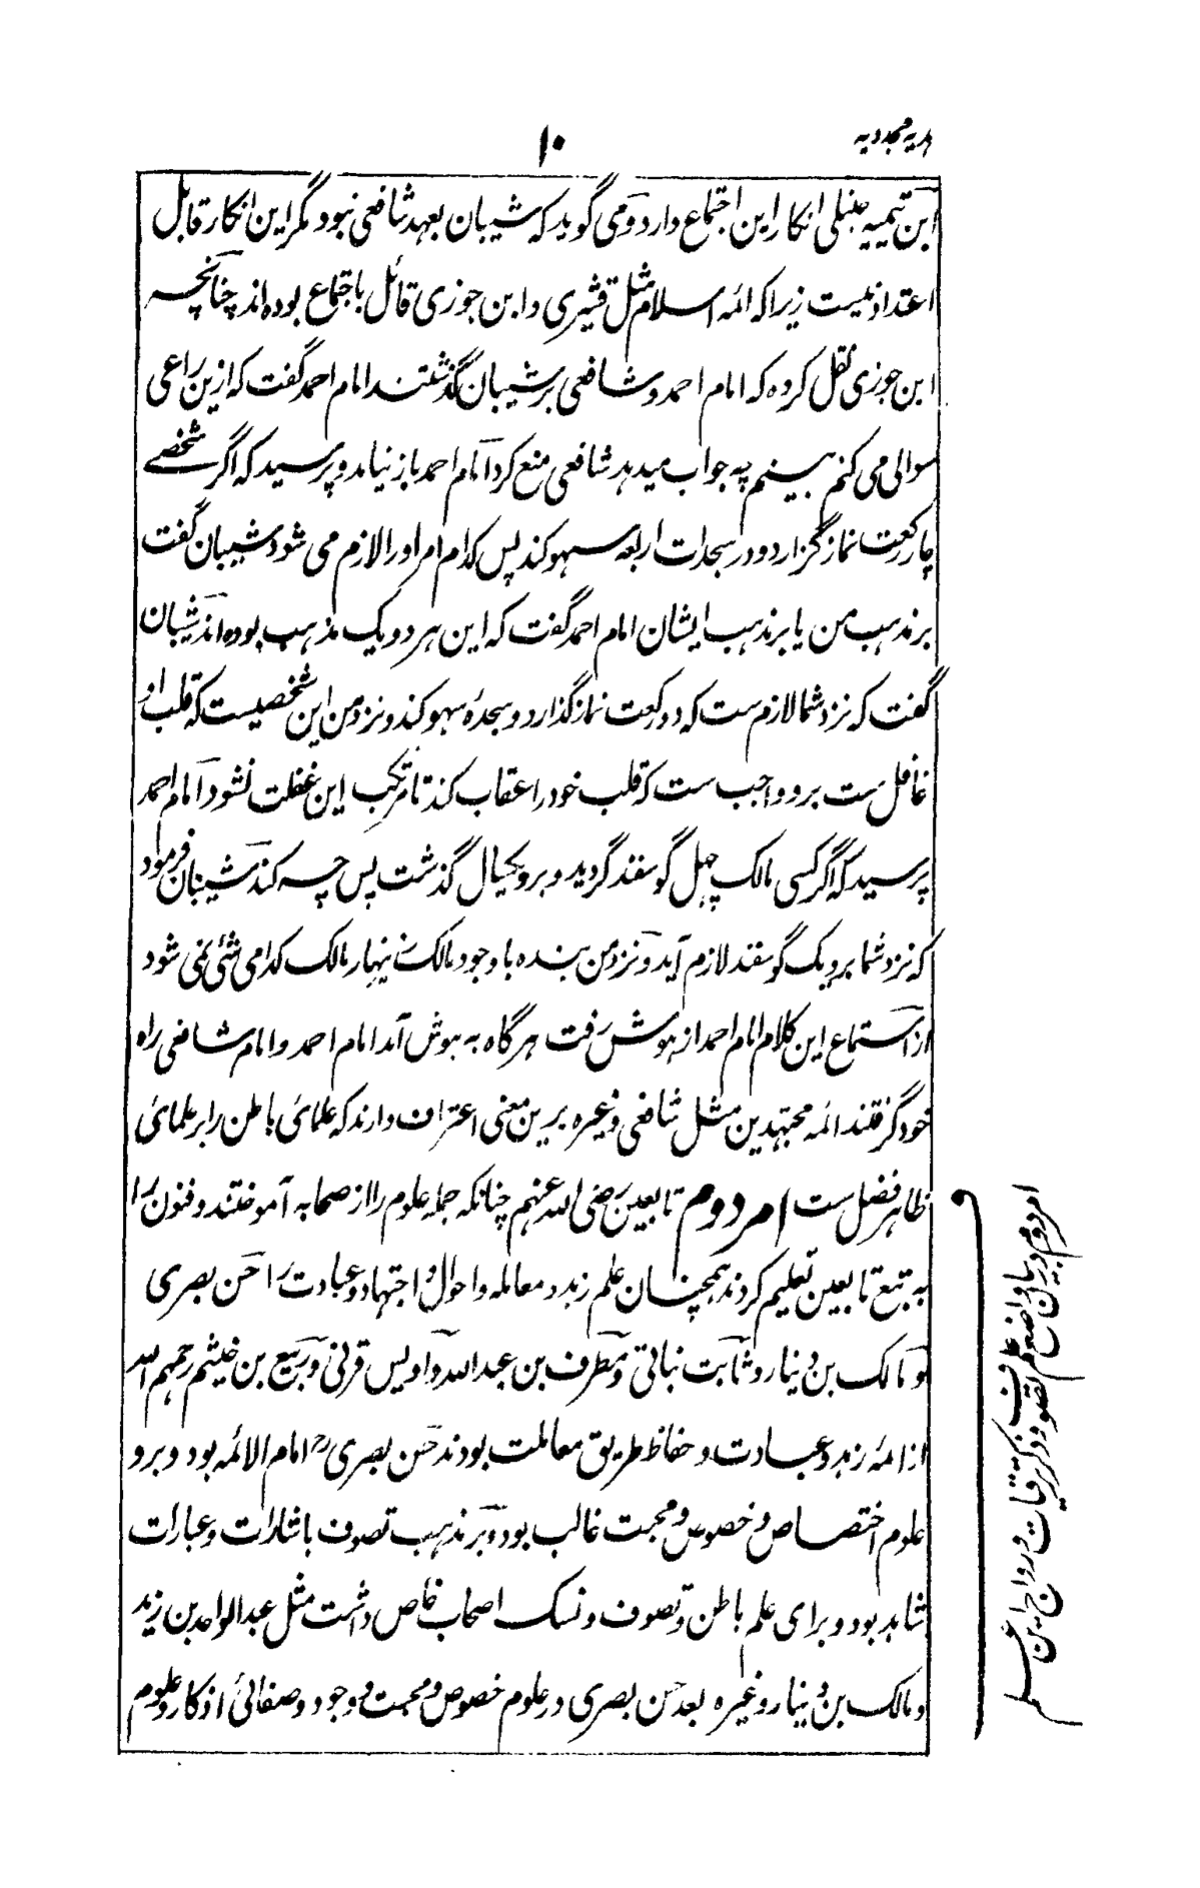 هدیه مجددیه
۱۰
ابن تیمیه حنبلی انکار این اجتماع دارد و می گوید که شیبان بعهد شافعی نبود مگر این انکار قابل
اعتداد نیست زیرا که ائمه اسلام مثل قشیری و ابن جوزی قائل باجتماع بوده اند چنانچه
ابن جوزی نقل کرده که امام احمد و شافعی بر شیبان گذشتند امام احمد گفت که ازین راعی
سوالی می کنم ببینم چه جواب میدهد شافعی منع کرد امام احمد باز نیامد و پرسید که اگر شخصے
چار رکعت نماز گزارد و در سجدات اربعه سهو کند پس کدام امر اورا لازم می شود شیبان گفت
بر مذهب من یا بر مذهب ایشان امام احمد گفت که این هر دو یک مذهب بوده اند شیبان
گفت که نزد شما لازم ست که دو رکعت نماز گذارد و سجدۀ سهو کند و نزد من این شخصیست که قلب او
غافل ست برو واجب ست که قلب خود را عقاب کند تا مرتکب این غفلت نشود امام احمد
پرسید که اگر کسی مالک چهل گوسفند گردید و برو یکسال گذشت پس چه کند شیبان فرمود
که نزد شما برو یک گوسفند لازم آید و نزد من بنده با وجود مالک نہار مالک کدامی شئی نمی شود
از استماع این کلام امام احمد از هوش رفت هر گاه به هوش آمد امام احمد و امام شافعی راه
خود گرفتند ائمه مجتهدین مثل شافعی وغیره برین معنی اعتراف دارند که علمائ باطن را بر علمائ
ظاهر فضل ست امر دوم تابعین رضی الله عنهم چنانکه جمله علوم را از صحابه آموختند و فنون را
به تبع تابعین تعلیم کردند همچنان علم زهد و معامله و احوال و اجتهاد و عبادت را حسن بصری
و مالک بن دینار و ثابت نباتی و مطرف بن عبد الله و اویس قرنی و ربیع بن خیثم رحمهم الله
از ائمۀ زهد و عبادت و حفاظ طریق معاملت بودند حسن بصری رح امام الائمه بود و برو
علوم اختصاص و خصوص و محبت غالب بود و بر مذهب تصوف باشارات و عبارات
شاهد بود و برای علم باطن و تصوف و نسک اصحاب خاص داشت مثل عبد الواحد بن زید
و مالک بن دینار وغیره بعد حسن بصری در علوم خصوص و محبت و وجود و صفائی اذکار و علوم
امر دوم در بیان واضع علم تصوف و ذکر ترقیات و رواج این علم